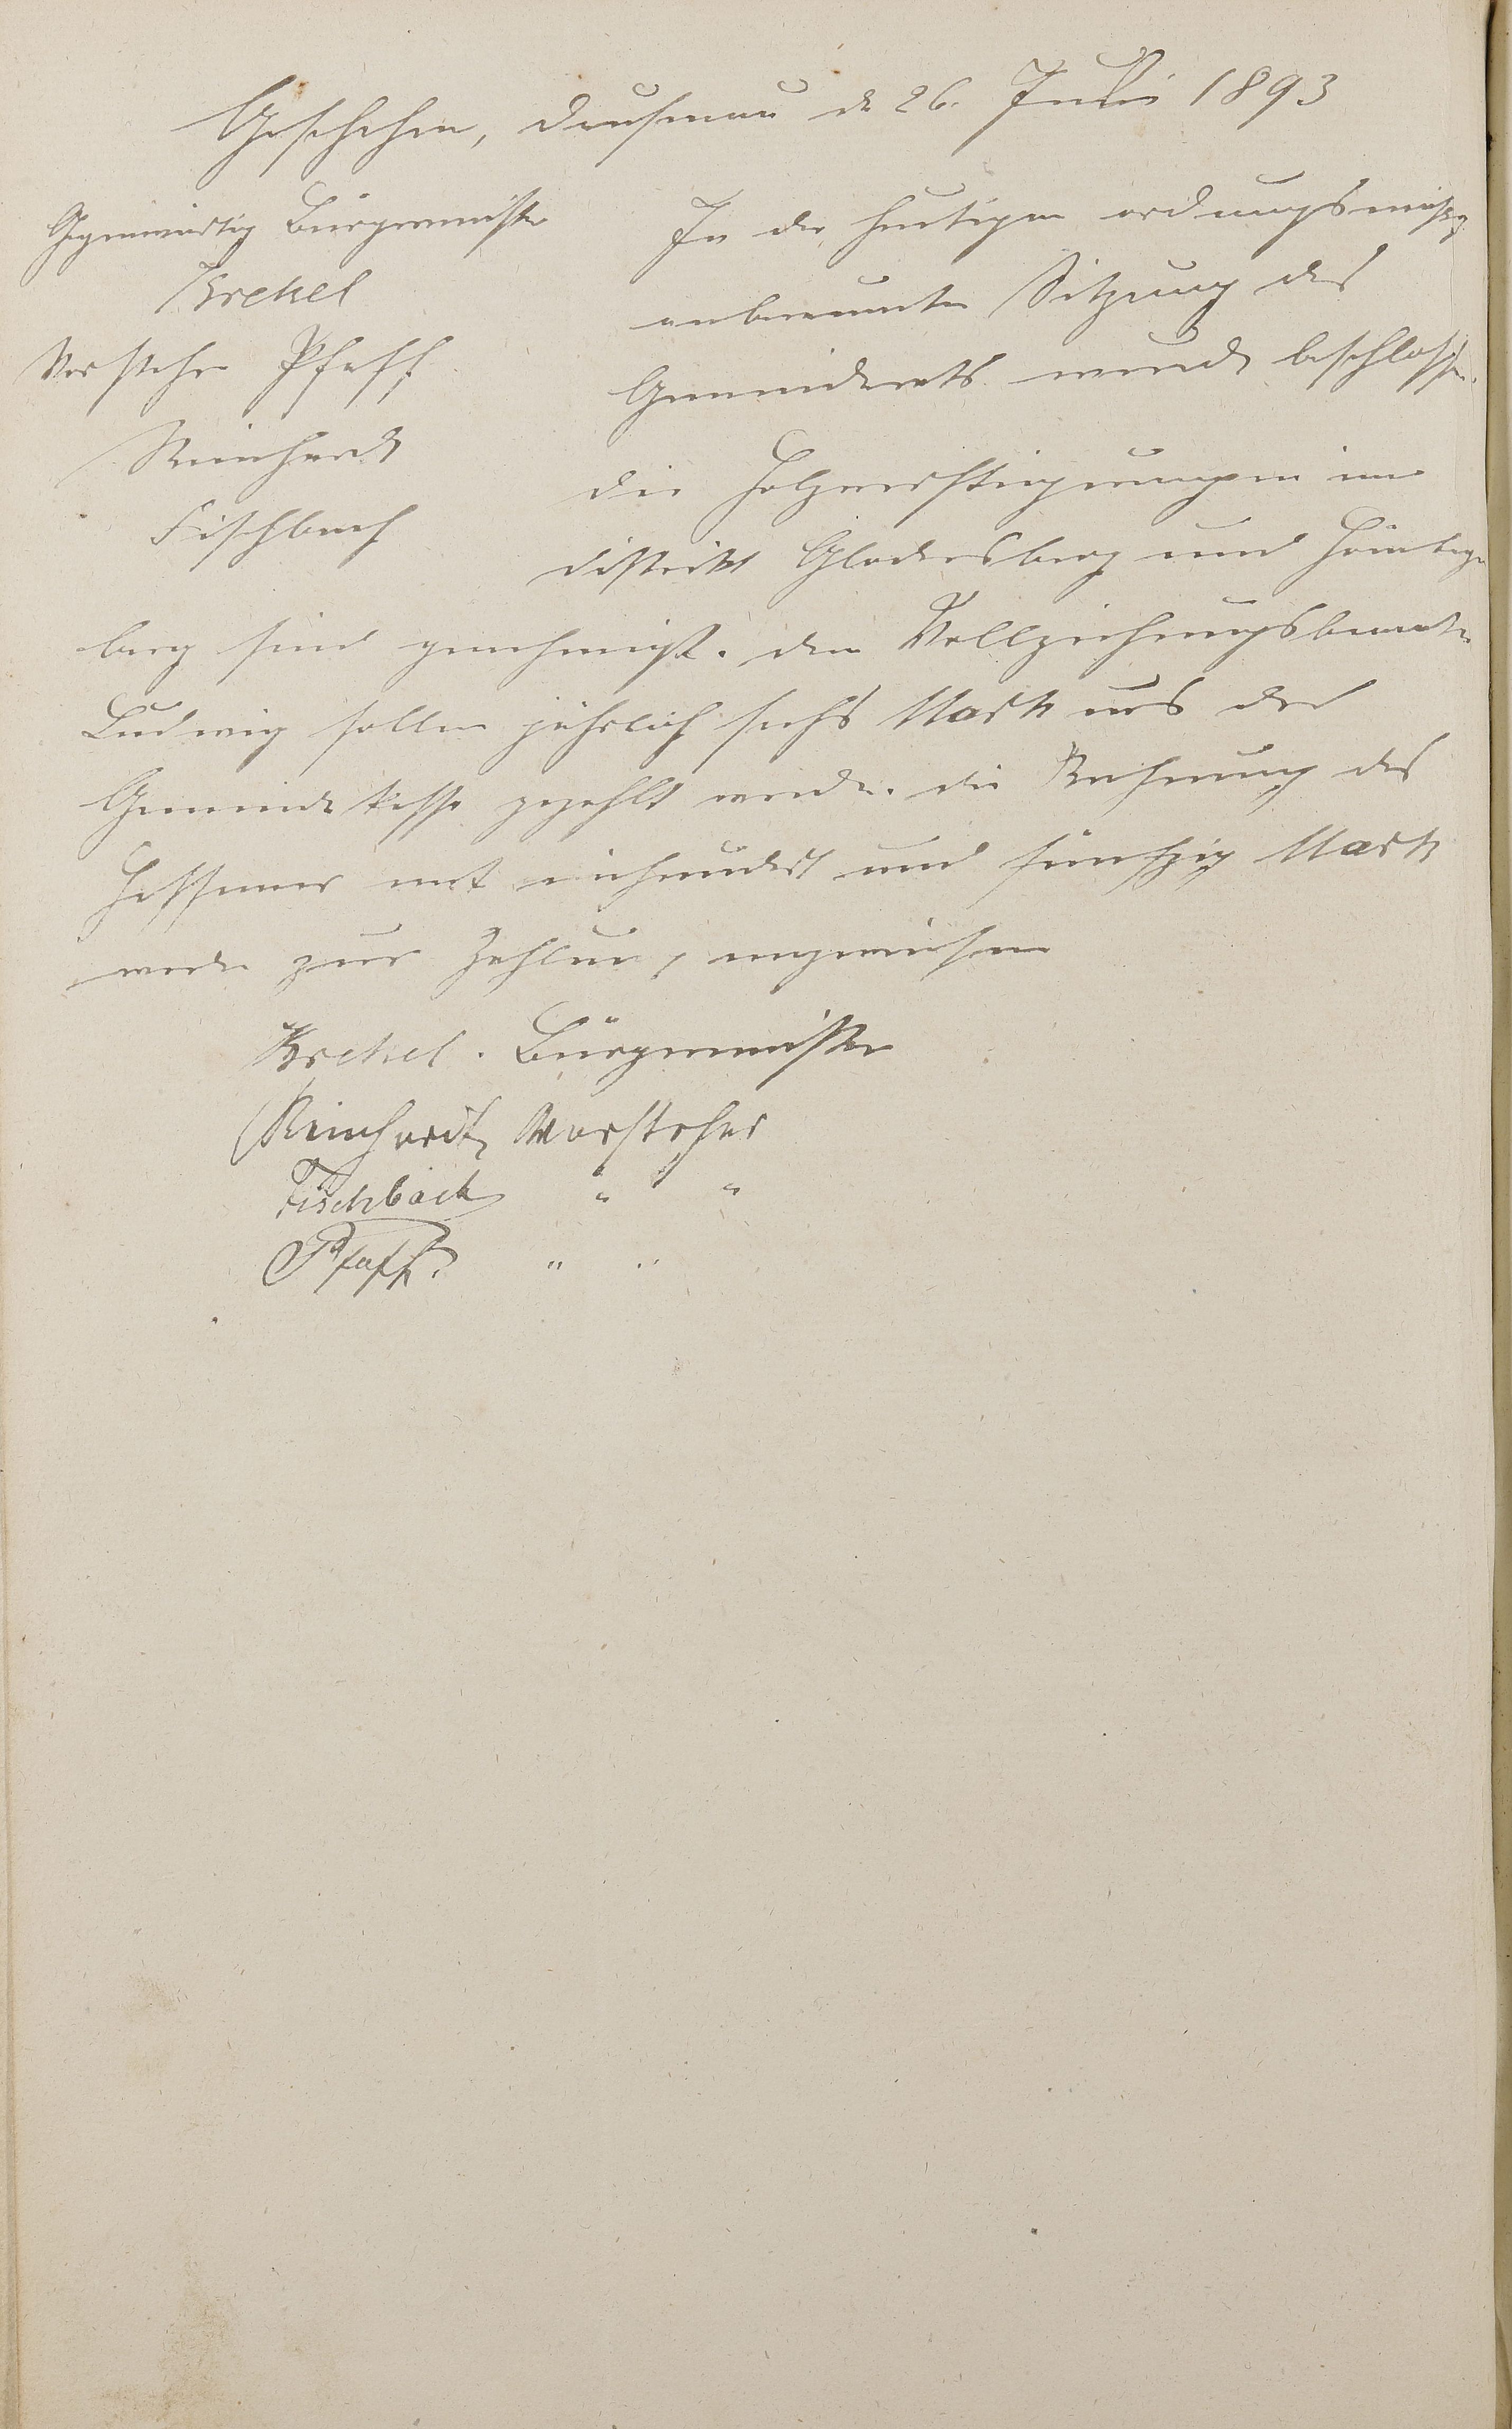 Geschehen, Dausenau d 26. Juli 1893
Gegenwärtig Bürgermeister
Krekel
Vorsteher Pfaff
Reinhardt
Fischbach
In der heutigen ordnungsmäßig
anberaumten Sitzung des
Gemeinderats wurde beschlossen.
die Holzversteigerungen im
Distrikt und
berg sind genehmigt. den Vollziehungsbeamten
Ludwig sollen jährlich sechs Mark aus der
Gemeindekasse gezahlt werden. die Rechnung des
mit einhundert und fünfzig Mark
werden zur Zahlung angewiesen
Krekel. Bürgermeister
Reinhardt Vorsteher
Fischbach " "
Pfaff. " "